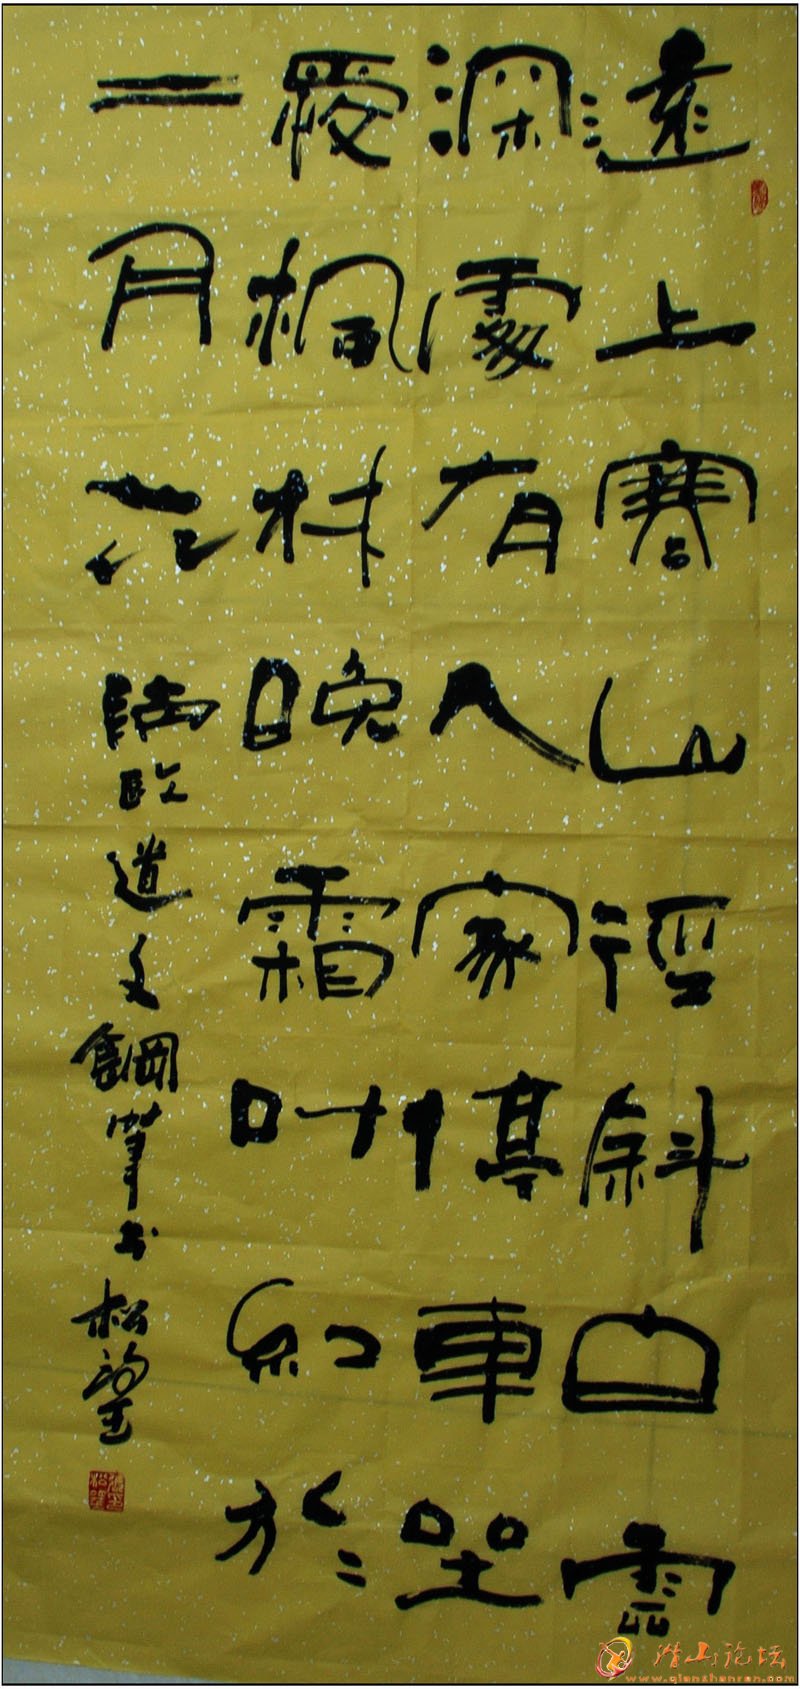 遠上寒山徑斜白雲
深處有人家停車坐
愛楓林晚霜叶紅於
二月花
歐道文鋼筆书松
潜山论坛
www.qianshanren.com